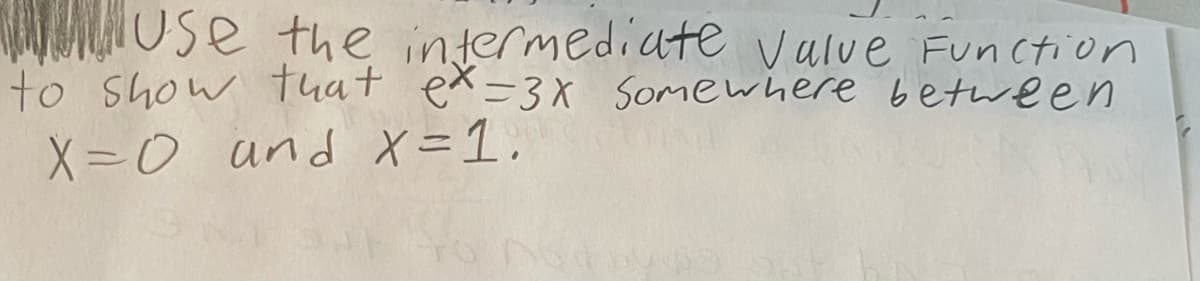 Use the intermediate Value Function
to show that e^x=3x Somewhere between
x=0 and x=1.